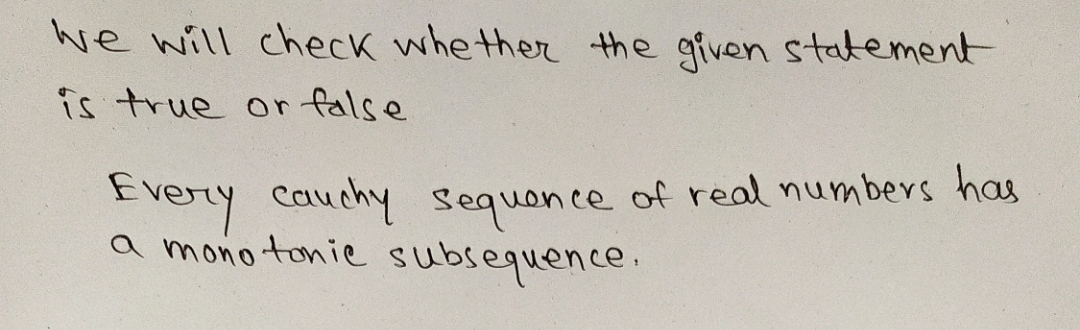 We will check whether the given statement
is true or false
Every cauchy sequence of real numbers has
a monotonic subsequence.